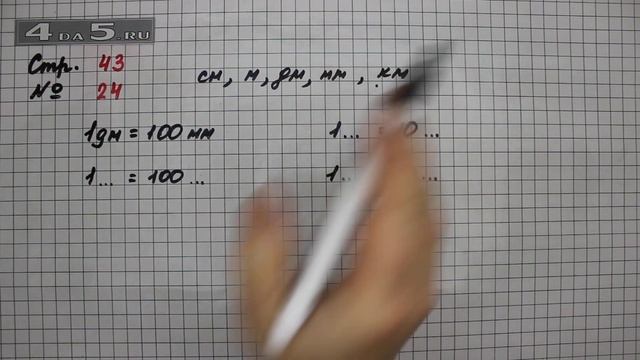 4 DA 5.RU
Стр. 43
№ 24
см, м, дм, мм, км
1дм = 100 мм
1... = 10 ...
1... = 100 ...
1..
...